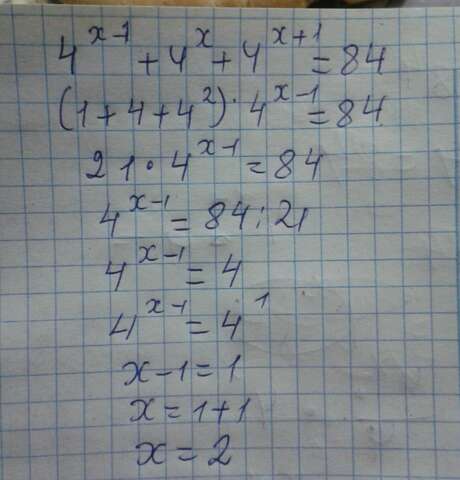 4^{x-1} + 4^x + 4^{x+1} = 84
(1 + 4 + 4^2) · 4^{x-1} = 84
21 · 4^{x-1} = 84
4^{x-1} = 84 : 21
4^{x-1} = 4
4^{x-1} = 4^1
x - 1 = 1
x = 1 + 1
x = 2